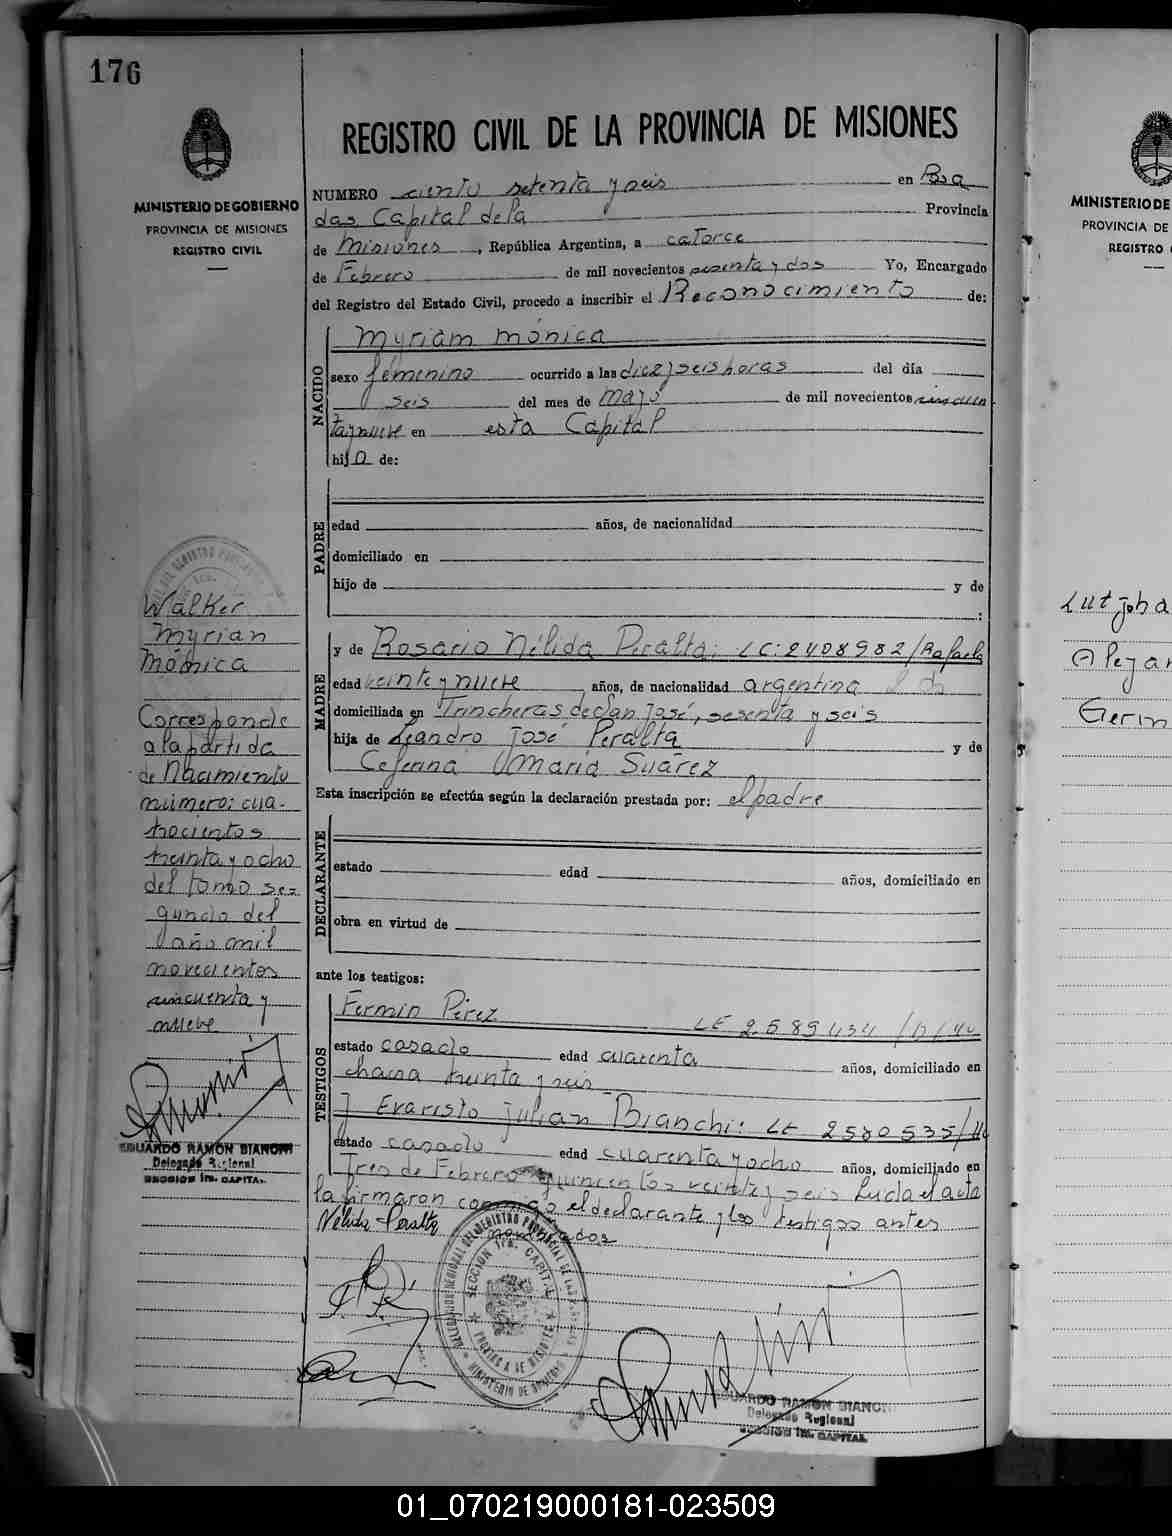 176
MINISTERIO DE GOBIERNO
PROVINCIA DE MISIONES
REGISTRO CIVIL
REGISTRO CIVIL DE LA PROVINCIA DE MISIONES
NUMERO ciento setenta y seis en Posa
das Capital de la Provincia
de Misiones, República Argentina, a catorce
de Febrero de mil novecientos sesenta y dos Yo, Encargado
del Registro del Estado Civil, procedo a inscribir el Reconocimiento de:
NACIDO
Myriam Mónica
sexo femenino ocurrido a las diez y seis horas del día
seis del mes de mayo de mil novecientos cincuen
ta y nueve en esta Capital
hija de:
PADRE
edad años, de nacionalidad
domiciliado en
hijo de y de
:
MADRE
y de Rosario Nélida Peralta: LC: 2408982/Rafaela
edad veinte y nueve, años, de nacionalidad argentina
domiciliada en Trincheras de San José, sesenta y seis
hija de Leandro José Peralta y de
Ceferina María Suárez
Esta inscripción se efectúa según la declaración prestada por: el padre
DECLARANTE
estado edad años, domiciliado en
obra en virtud de
ante los testigos:
TESTIGOS
Fermin Pérez LE 2.589434
estado casado edad cuarenta años, domiciliado en
treinta y seis
y Evaristo Julian Bianchi: LE 2580535
estado casado edad cuarenta y ocho años, domiciliado en
Tres de Febrero quinientos veinte y seis Leida el acta
la firmaron conmigo el declarante y los testigos antes
nombrados
Nélida Peralta
DELEGACION REGIONAL DEL REGISTRO PROVINCIAL DE LAS PERSONAS
SECCION 1ra. CAPITAL
PROVINCIA DE MISIONES
MINISTERIO DE GOBIERNO
EDUARDO RAMON BIANCHI
Delegado Regional
SECCION 1ra. CAPITAL
Walker
Myrian
Mónica
Corresponde
a la partida
de Nacimiento
número: cua-
trocientos
treinta y ocho
del tomo se-
gundo del
año mil
novecientos
cincuenta y
nueve
EDUARDO RAMON BIANCHI
Delegado Regional
SECCION 1ra. CAPITAL
MINISTERIO DE
PROVINCIA DE
REGISTRO
Lutjoha
Alejan
Germ
01_070219000181-023509